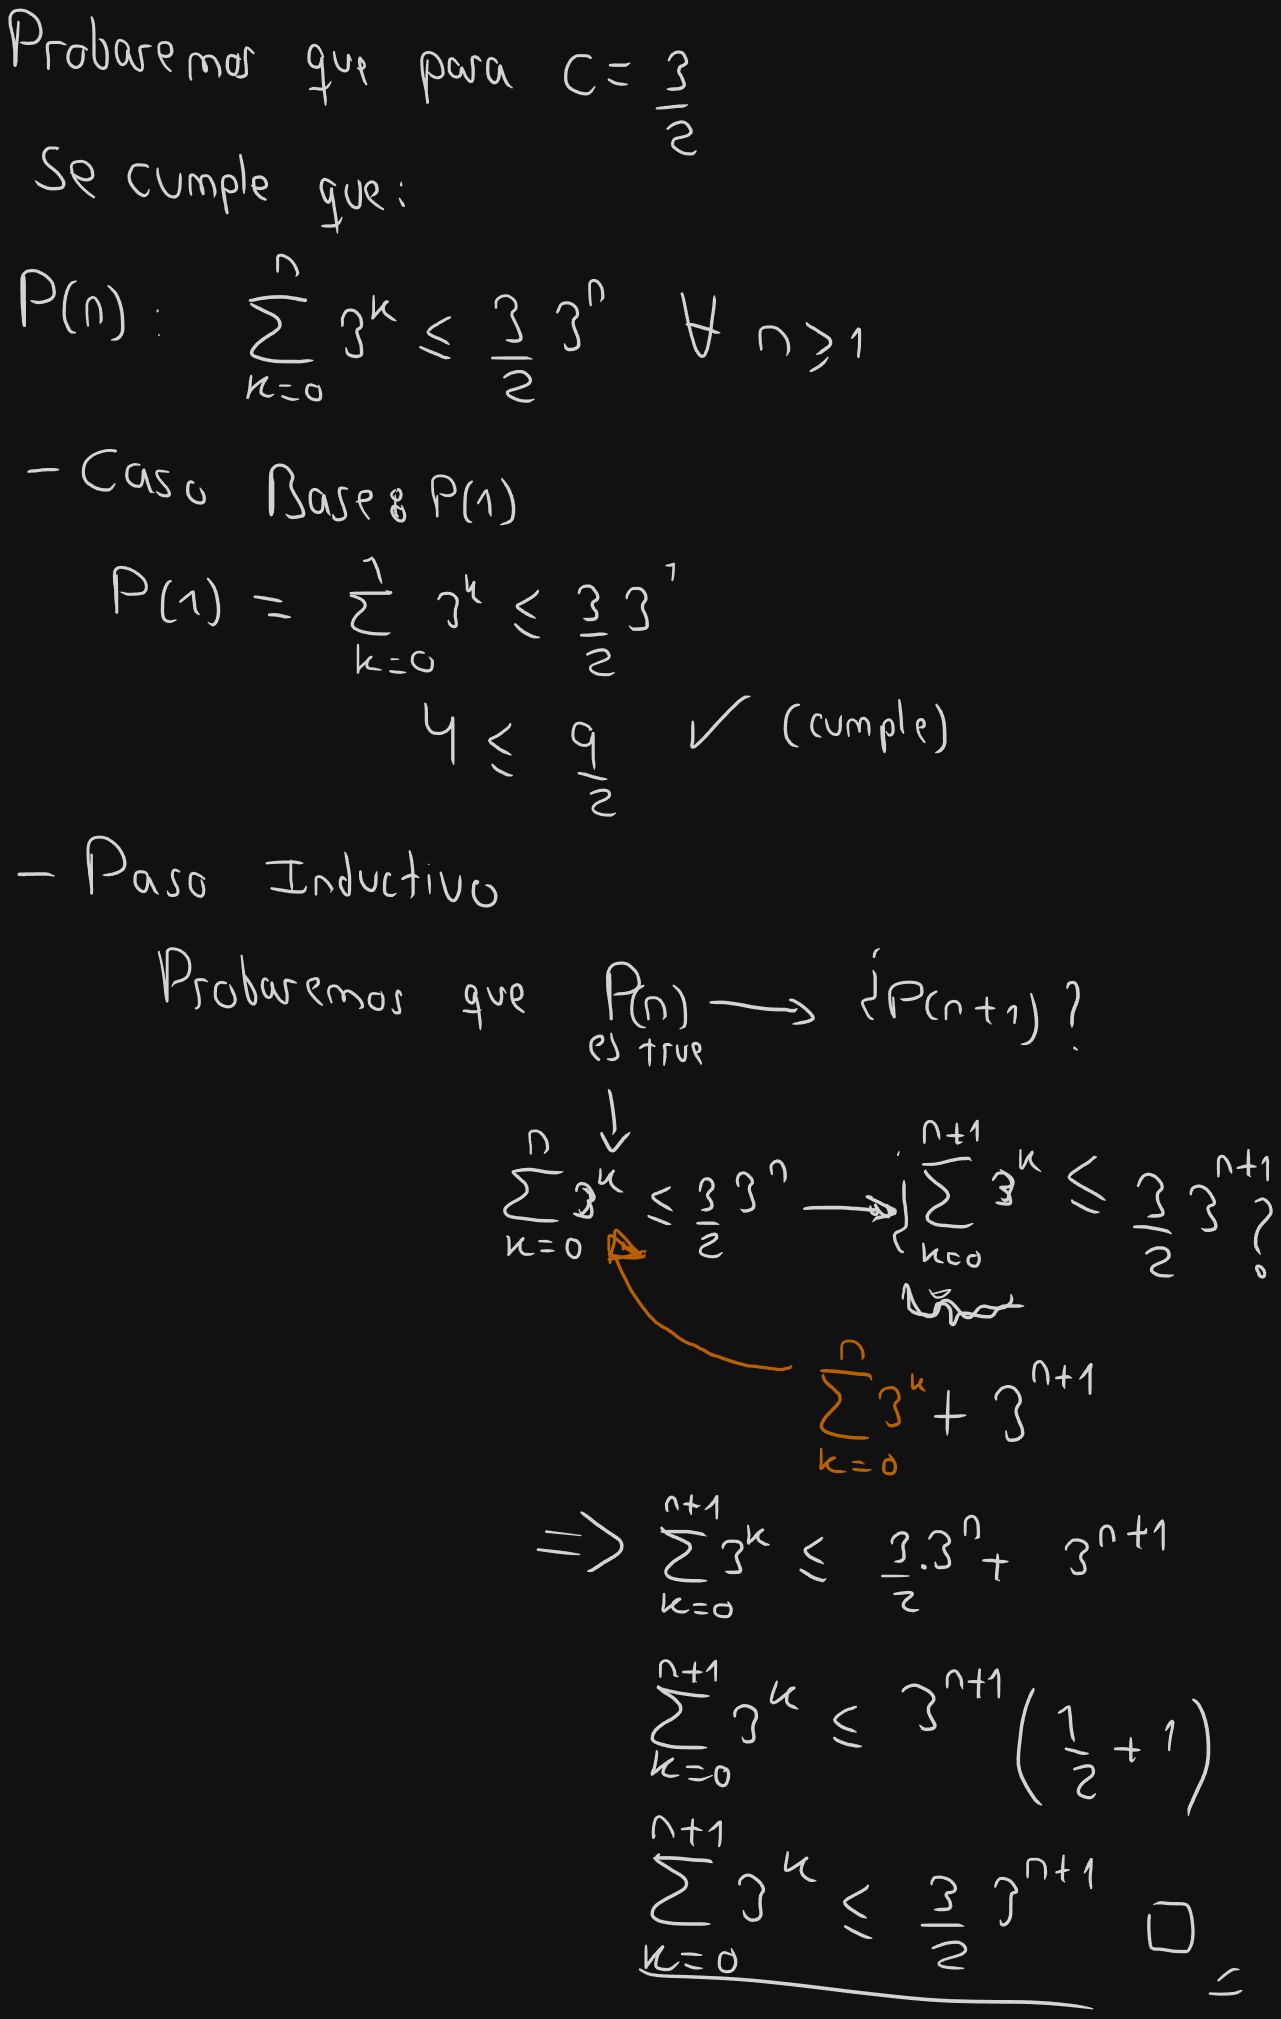 Probaremos que para C = 3/2
Se cumple que:
P(n): ∑_{k=0}^{n} 3^k ≤ 3/2 3^n ∀ n ≥ 1
- Caso Base: P(1)
P(1) = ∑_{k=0}^{1} 3^k ≤ 3/2 3^1
4 ≤ 9/2 ✓ (cumple)
- Paso Inductivo
Probaremos que P(n) → ¿P(n+1)?
es true
↓
∑_{k=0}^{n} 3^k ≤ 3/2 3^n → ¿∑_{k=0}^{n+1} 3^k ≤ 3/2 3^{n+1}?
∑_{k=0}^{n} 3^k + 3^{n+1}
=> ∑_{k=0}^{n+1} 3^k ≤ 3/2 . 3^n + 3^{n+1}
∑_{k=0}^{n+1} 3^k ≤ 3^{n+1} (1/2 + 1)
∑_{k=0}^{n+1} 3^k ≤ 3/2 3^{n+1} □